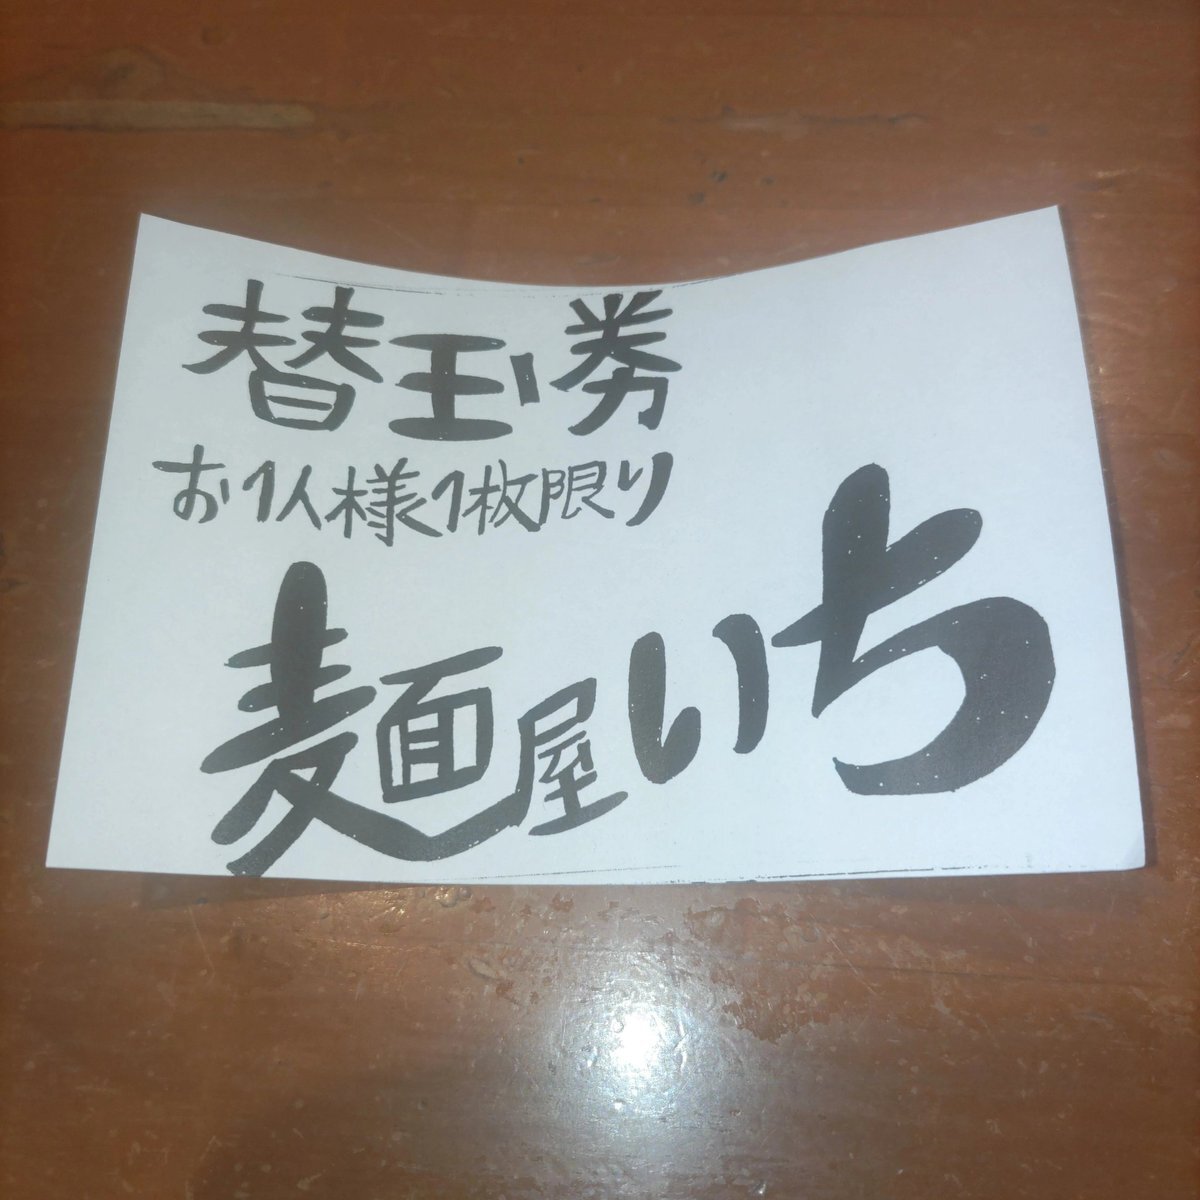 替玉券
お1人様1枚限り
麺屋いち